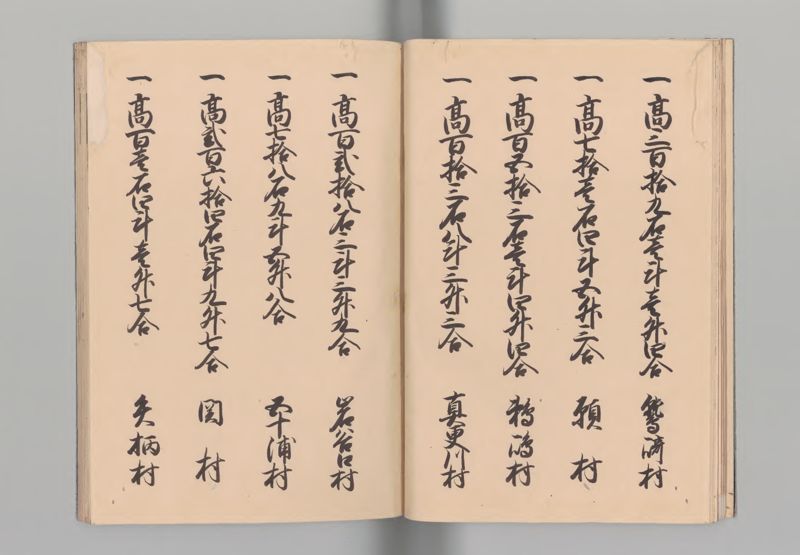 一 高三百拾九石壱斗壱升四合 鷲崎村
一 高七拾壱石四斗五升三合 願村
一 高百五拾二石壱斗四升四合 鵜嶋村
一 高百拾三石八斗三升二合 真更川村
一 高百弐拾八石三斗三升九合 岩谷口村
一 高七拾八石九斗五升八合 五十浦村
一 高弐百六拾四石四斗九升七合 関村
一 高百壱石四斗壱升七合 矢柄村